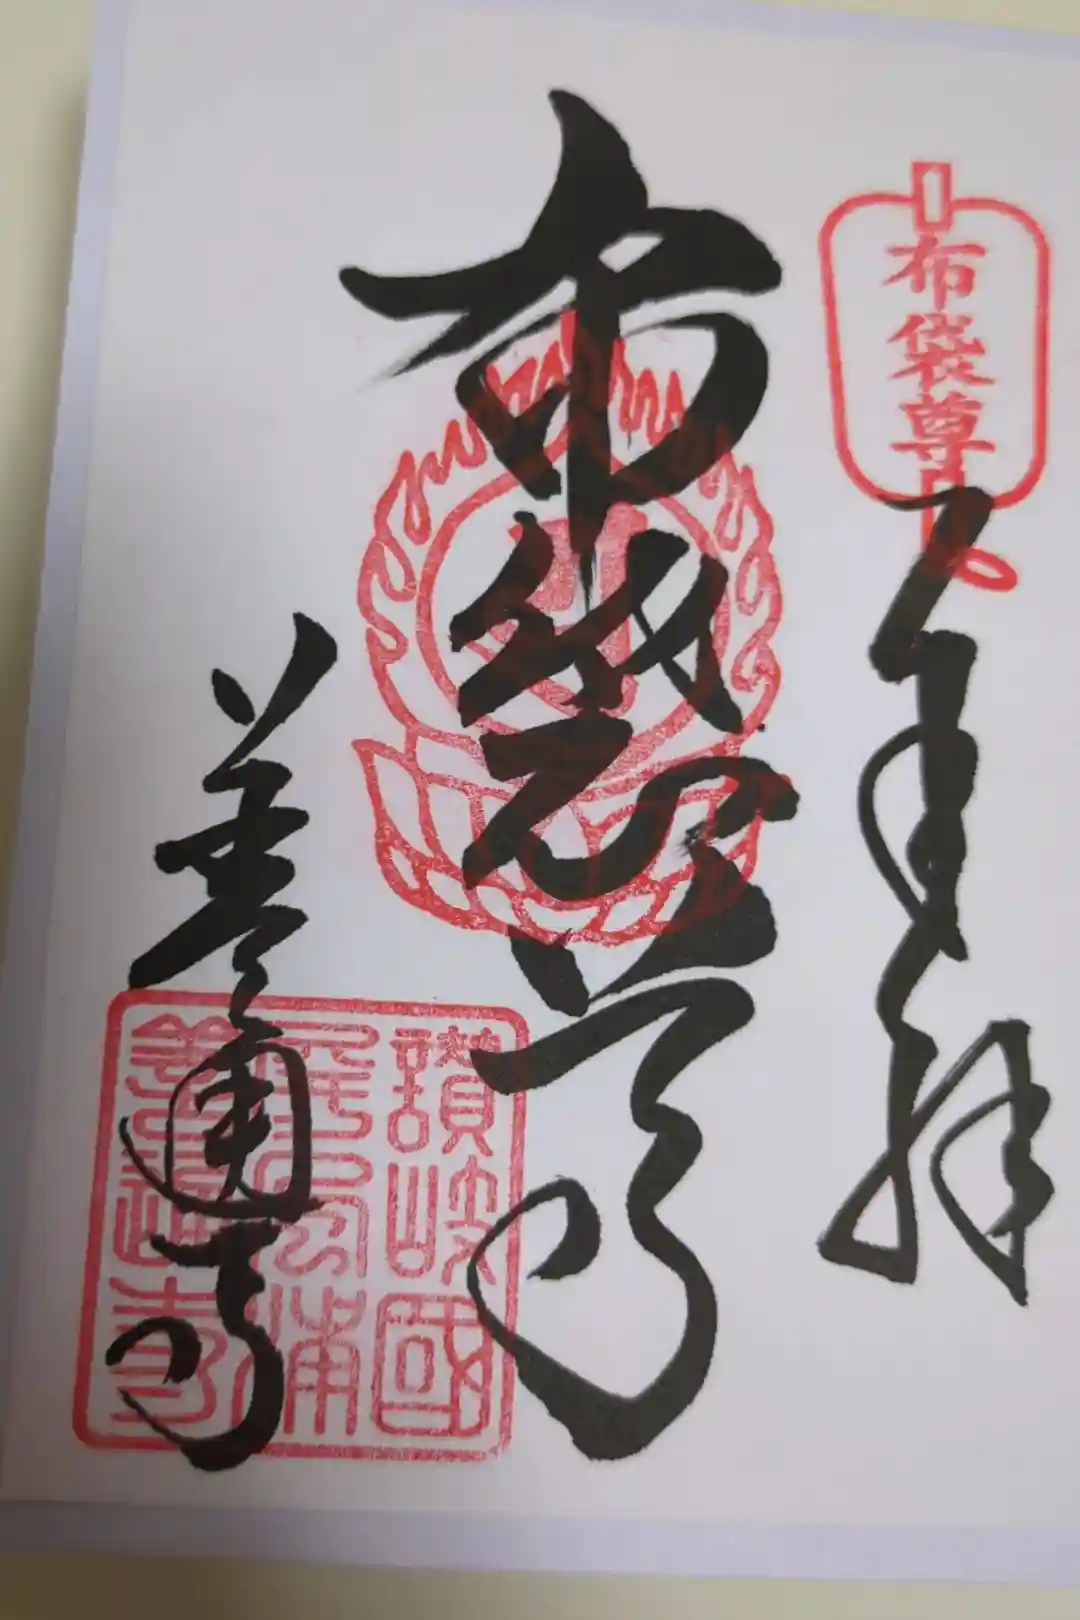 布袋尊
奉拝
布袋尊
善通寺
讚岐國
屏風浦
善通寺